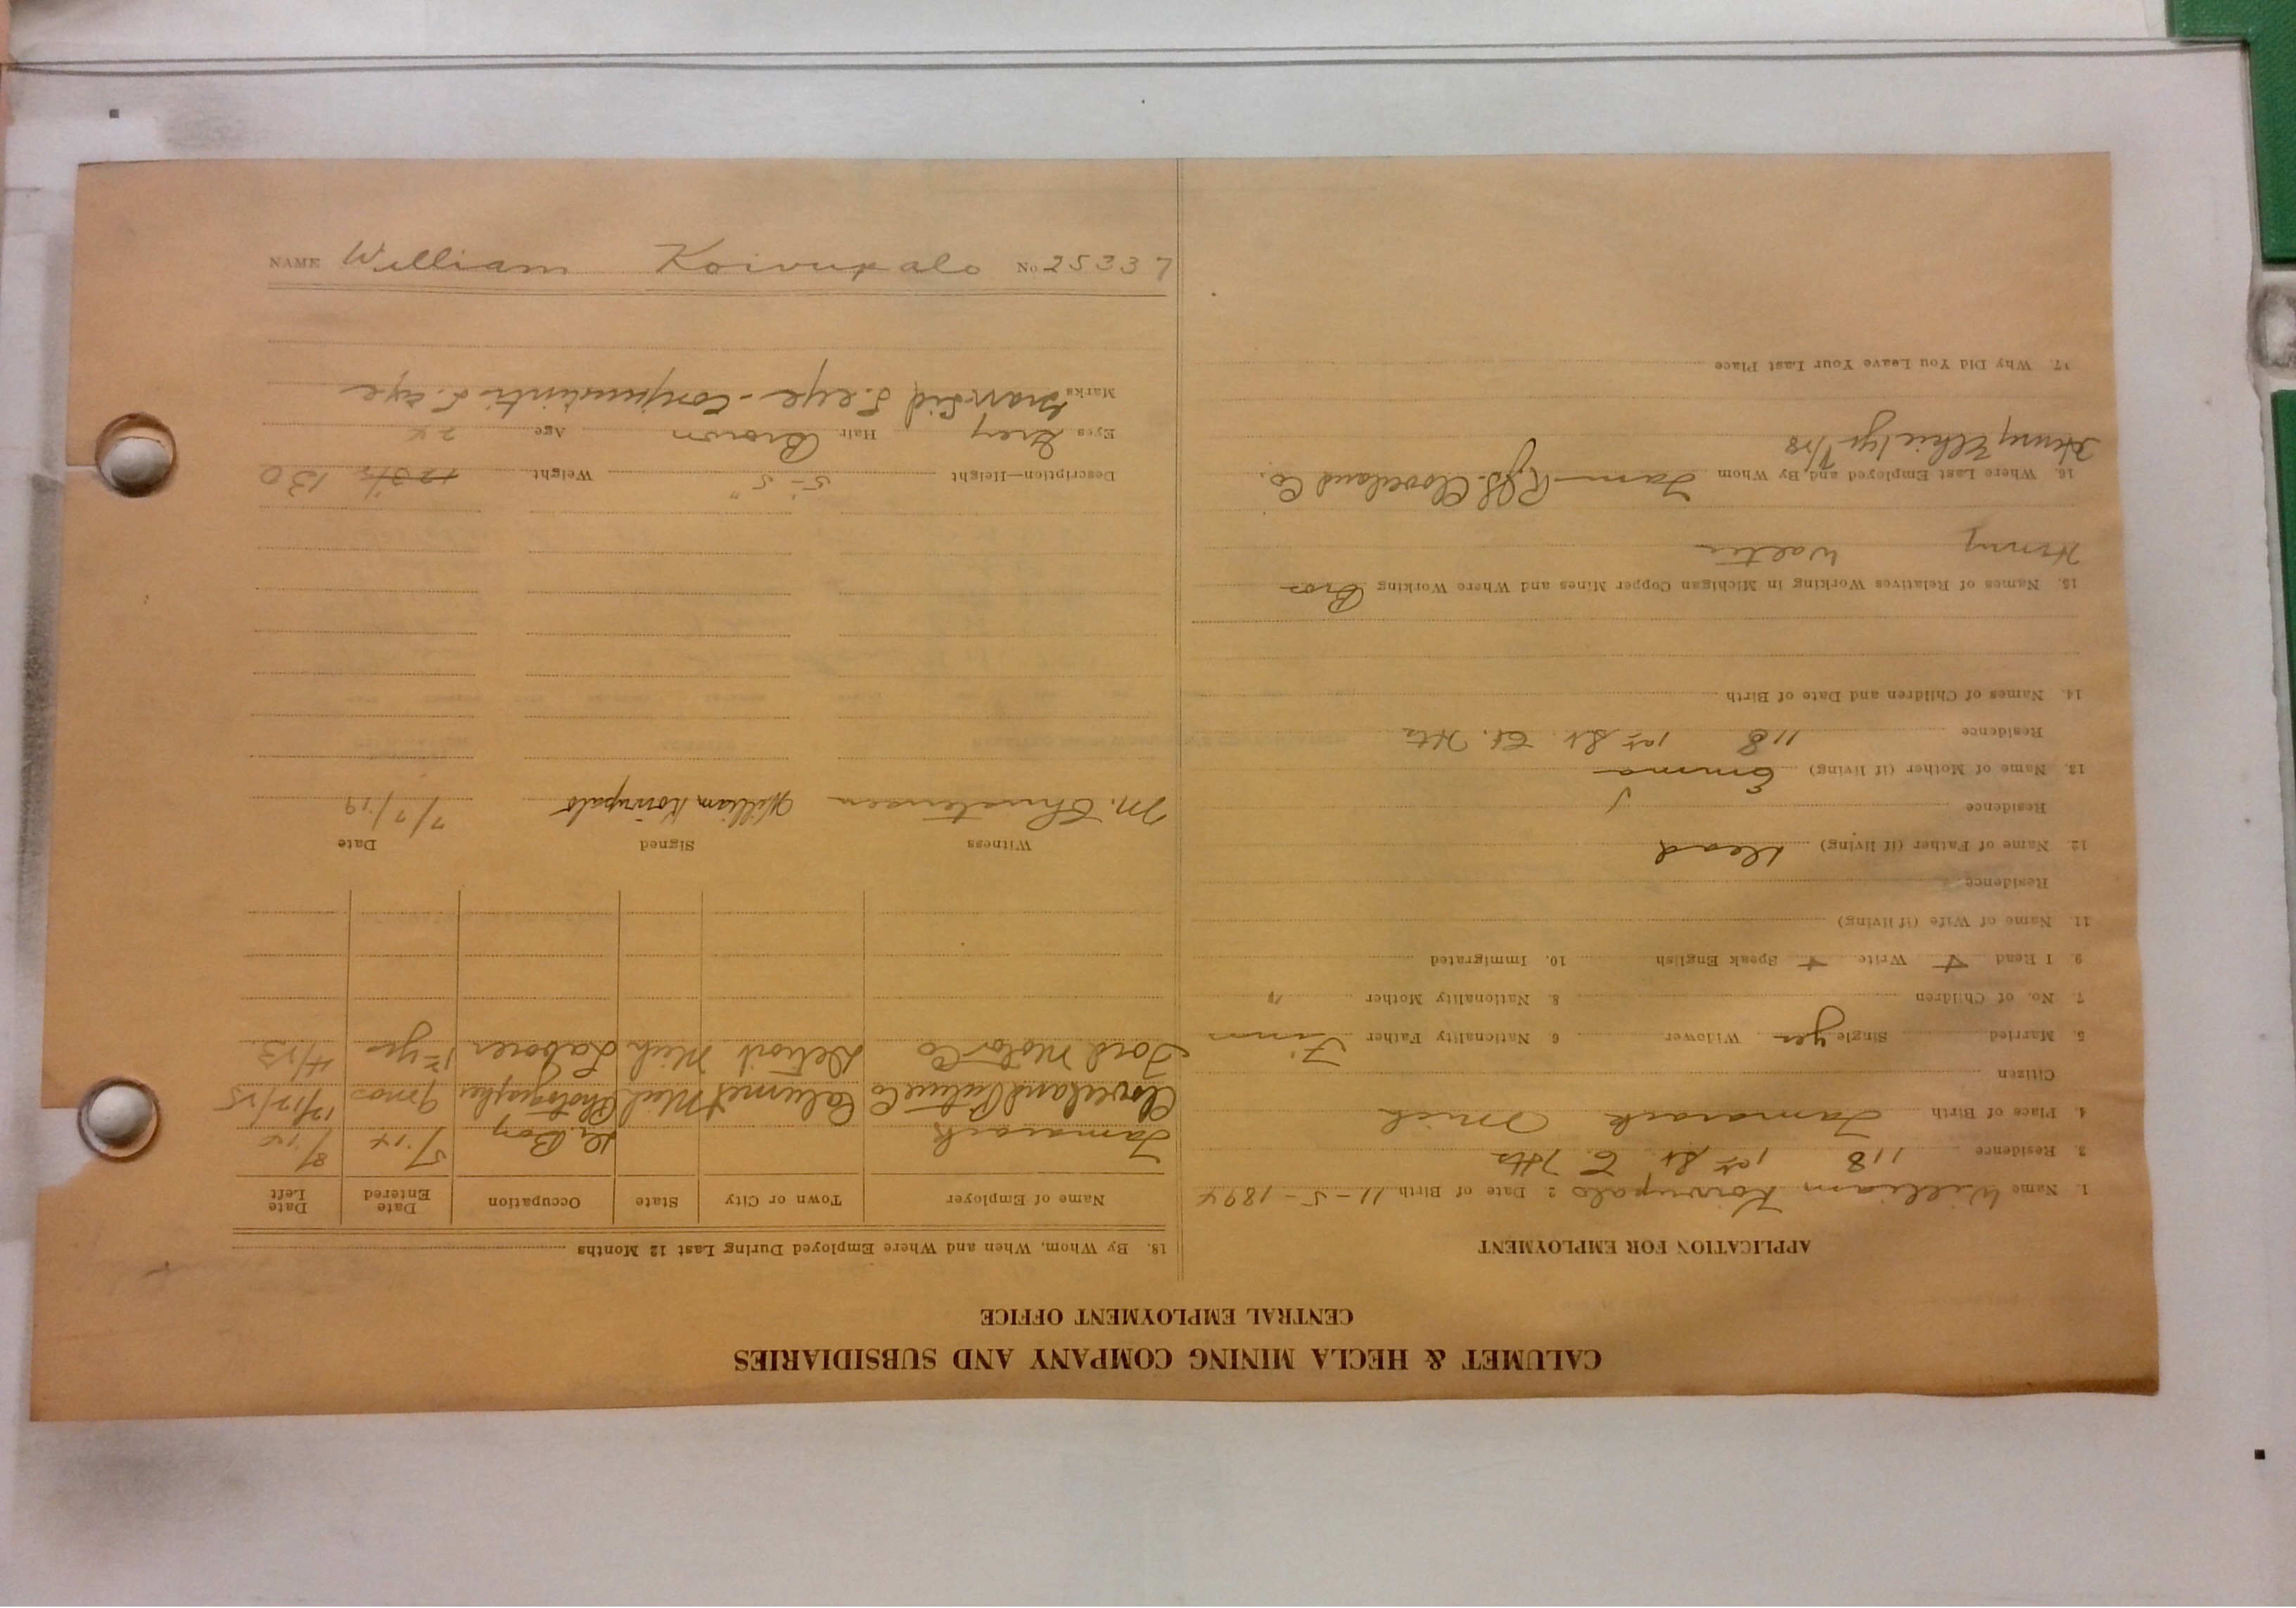 CALUMET & HECLA MINING COMPANY AND SUBSIDIARIES
CENTRAL EMPLOYMENT OFFICE
APPLICATION FOR EMPLOYMENT
1. Name William Koivupalo 2 Date of Birth 11-5-1894
3. Residence 118 1st St. C Hts
4. Place of Birth Tamarack Mich
Citizen
5 Married Single yes Widower 6 Nationality Father Finn
7. No. of Children 8. Nationality Mother "
9. I Read + Write + Speak English 10. Immigrated
11. Name of Wife (if living)
Residence
12. Name of Father (if living) dead
Residence
13. Name of Mother (if living) Emma
Residence 118 1st St. Cl. Hts
14. Names of Children and Date of Birth
15. Names of Relatives Working in Michigan Copper Mines and Where Working Bros
Henry Walter
16. Where Last Employed and By Whom Tam Cleveland Co.
Henry
17. Why Did You Leave Your Last Place
18. By Whom, When and Where Employed During Last 12 Months
Name of Employer Town or City State Occupation Date Entered Date Left
Tamarack Dr. Boy 5/14 8/14
Cleveland Calumet Mich Photographer 9 mos 12/17/15
Ford Motor Co Detroit Mich Laborer 1 yr
Witness Signed Date
M. Christensen William Koivupalo 7/7/19
Description—Height 5'-5" Weight 123½ 130
Eyes Grey Hair Brown Age 24
Marks L. eye L. eye
NAME William Koivupalo No 25337